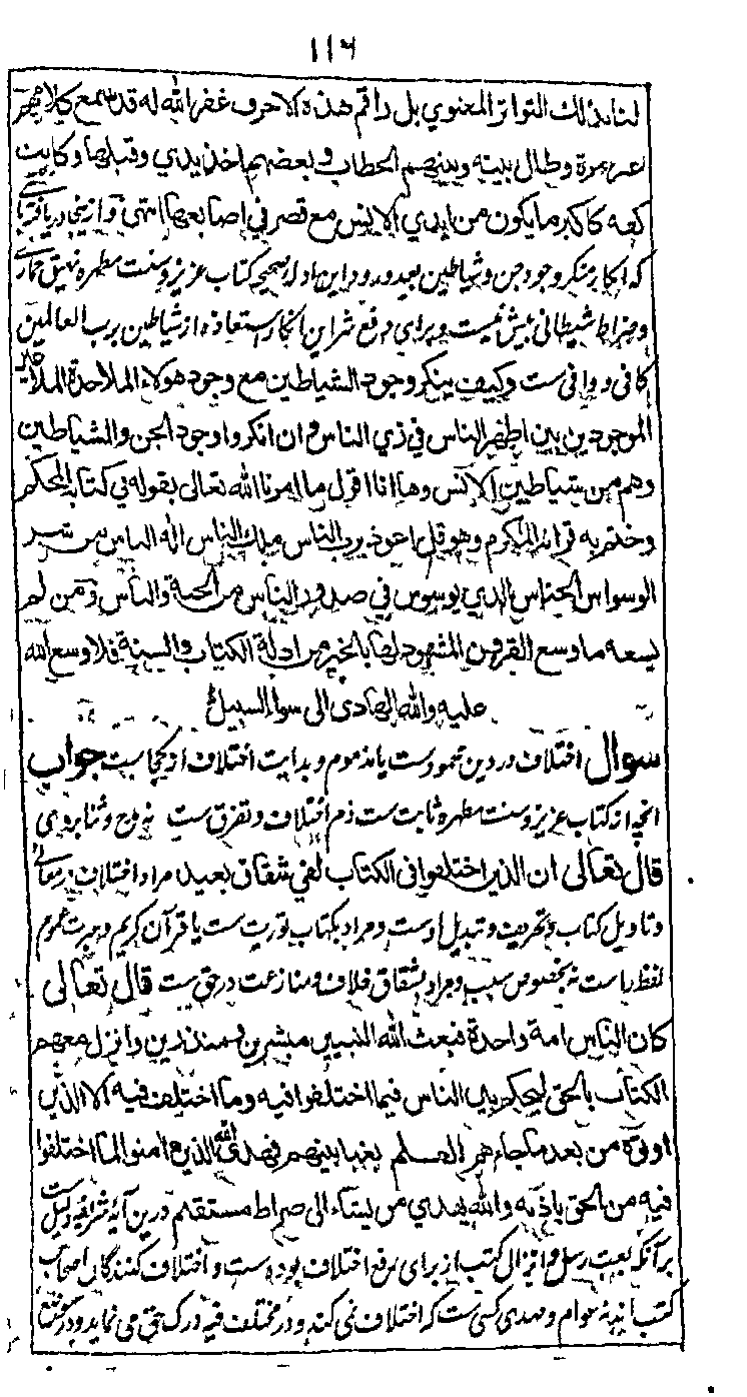 ۱۱۶
لنا بذلك التواتر المعنوي بل راقم هذه الاحرف غفر الله له قد سمع كلامهم
غير مرة وطال بينه وبينهم الخطاب و بعضهم اخذ يدي وقبلها وكانت
كفه كاكبر ما يكون من ايدي الانس مع قصر في اصابعها انتهى و از ينجا دريافتى
كه انكار منكر وجود جن و شياطين بعد ورود اين ادله صحيحه كتاب عزيز و سنت مطهره نهيق حمارى
و ضراط شيطانى بيش نيست و براى دفع شر اين انكار استعاذه از شياطين برب العالمين
كافى و وافى ست وكيف ينكر وجود الشياطين مع وجود هؤلاء الملاحدة
الموجودين بين اظهر الناس في زي الناس و ان انكروا وجود الجن والشياطين
وهم من شياطين الانس وها انا اقول ما امرنا الله تعالى بقوله في كتابه المحكم
وختم به قرانه المكرم وهو قل اعوذ برب الناس ملك الناس اله الناس من شر
الوسواس الخناس الذي يوسوس في صدور الناس من الجنة والناس و من لم
يسعه ما وسع القرون المشهود لها بالخير من ادلة الكتاب والسنة فلا وسع الله
عليه والله الهادى الى سواء السبيل
سوال اختلاف در دين محمود ست يا مذموم و بدايت اختلاف از كجاست جواب
انچه از كتاب عزيز و سنت مطهره ثابت ست ذم اختلاف و تفرق ست نه مدح و ثنا بروى
قال تعالى ان الذين اختلفوا فى الكتاب لفي شقاق بعيد مراد اختلاف در معانى
و تاويل كتاب و تحريف و تبديل اوست و مراد بكتاب توريت ست يا قرآن كريم و عبرت بعموم
لفظ راست نه بخصوص سبب و مراد بشقاق خلاف و منازعت در حق ست قال تعالى
كان الناس امة واحدة فبعث الله النبيين مبشرين ومنذرين وانزل معهم
الكتاب بالحق ليحكم بين الناس فيما اختلفوا فيه وما اختلف فيه الا الذين
اوتوه من بعد ما جاءهم العلم بغيا بينهم فهدى الله الذين امنوا لما اختلفوا
فيه من الحق باذنه والله يهدي من يشاء الى صراط مستقيم درين آيه شريفه دليل ست
بر آنكه بعثت رسل و انزال كتب از براى رفع اختلاف بوده است و اختلاف كنندگان اصحاب
كتب اند نه عوام و مهدى كسى ست كه اختلاف نمى كند و در مختلف فيه درك حق مى نمايد و در